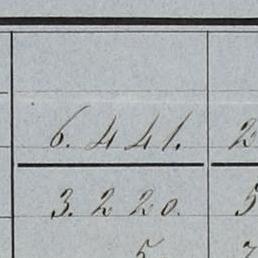 6.441. 2
3.220. 5
5 7